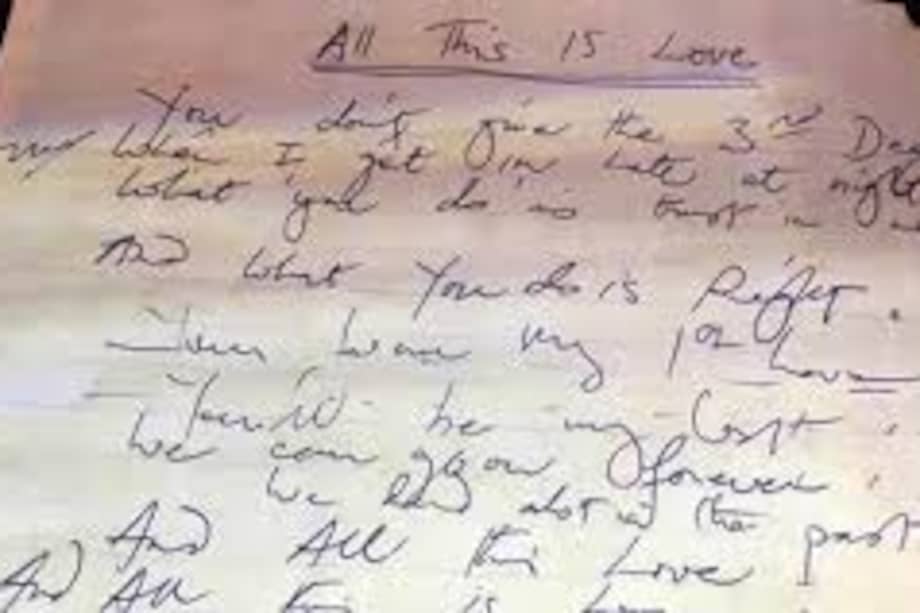 All This is Love
You don't give the 3rd
When I get in late at night
What you do is trust in
And what You do is Right.
You were my 1st Love
You'll be my Last.
We can grow forever.
We had alot in the past
And All this Love
And All is